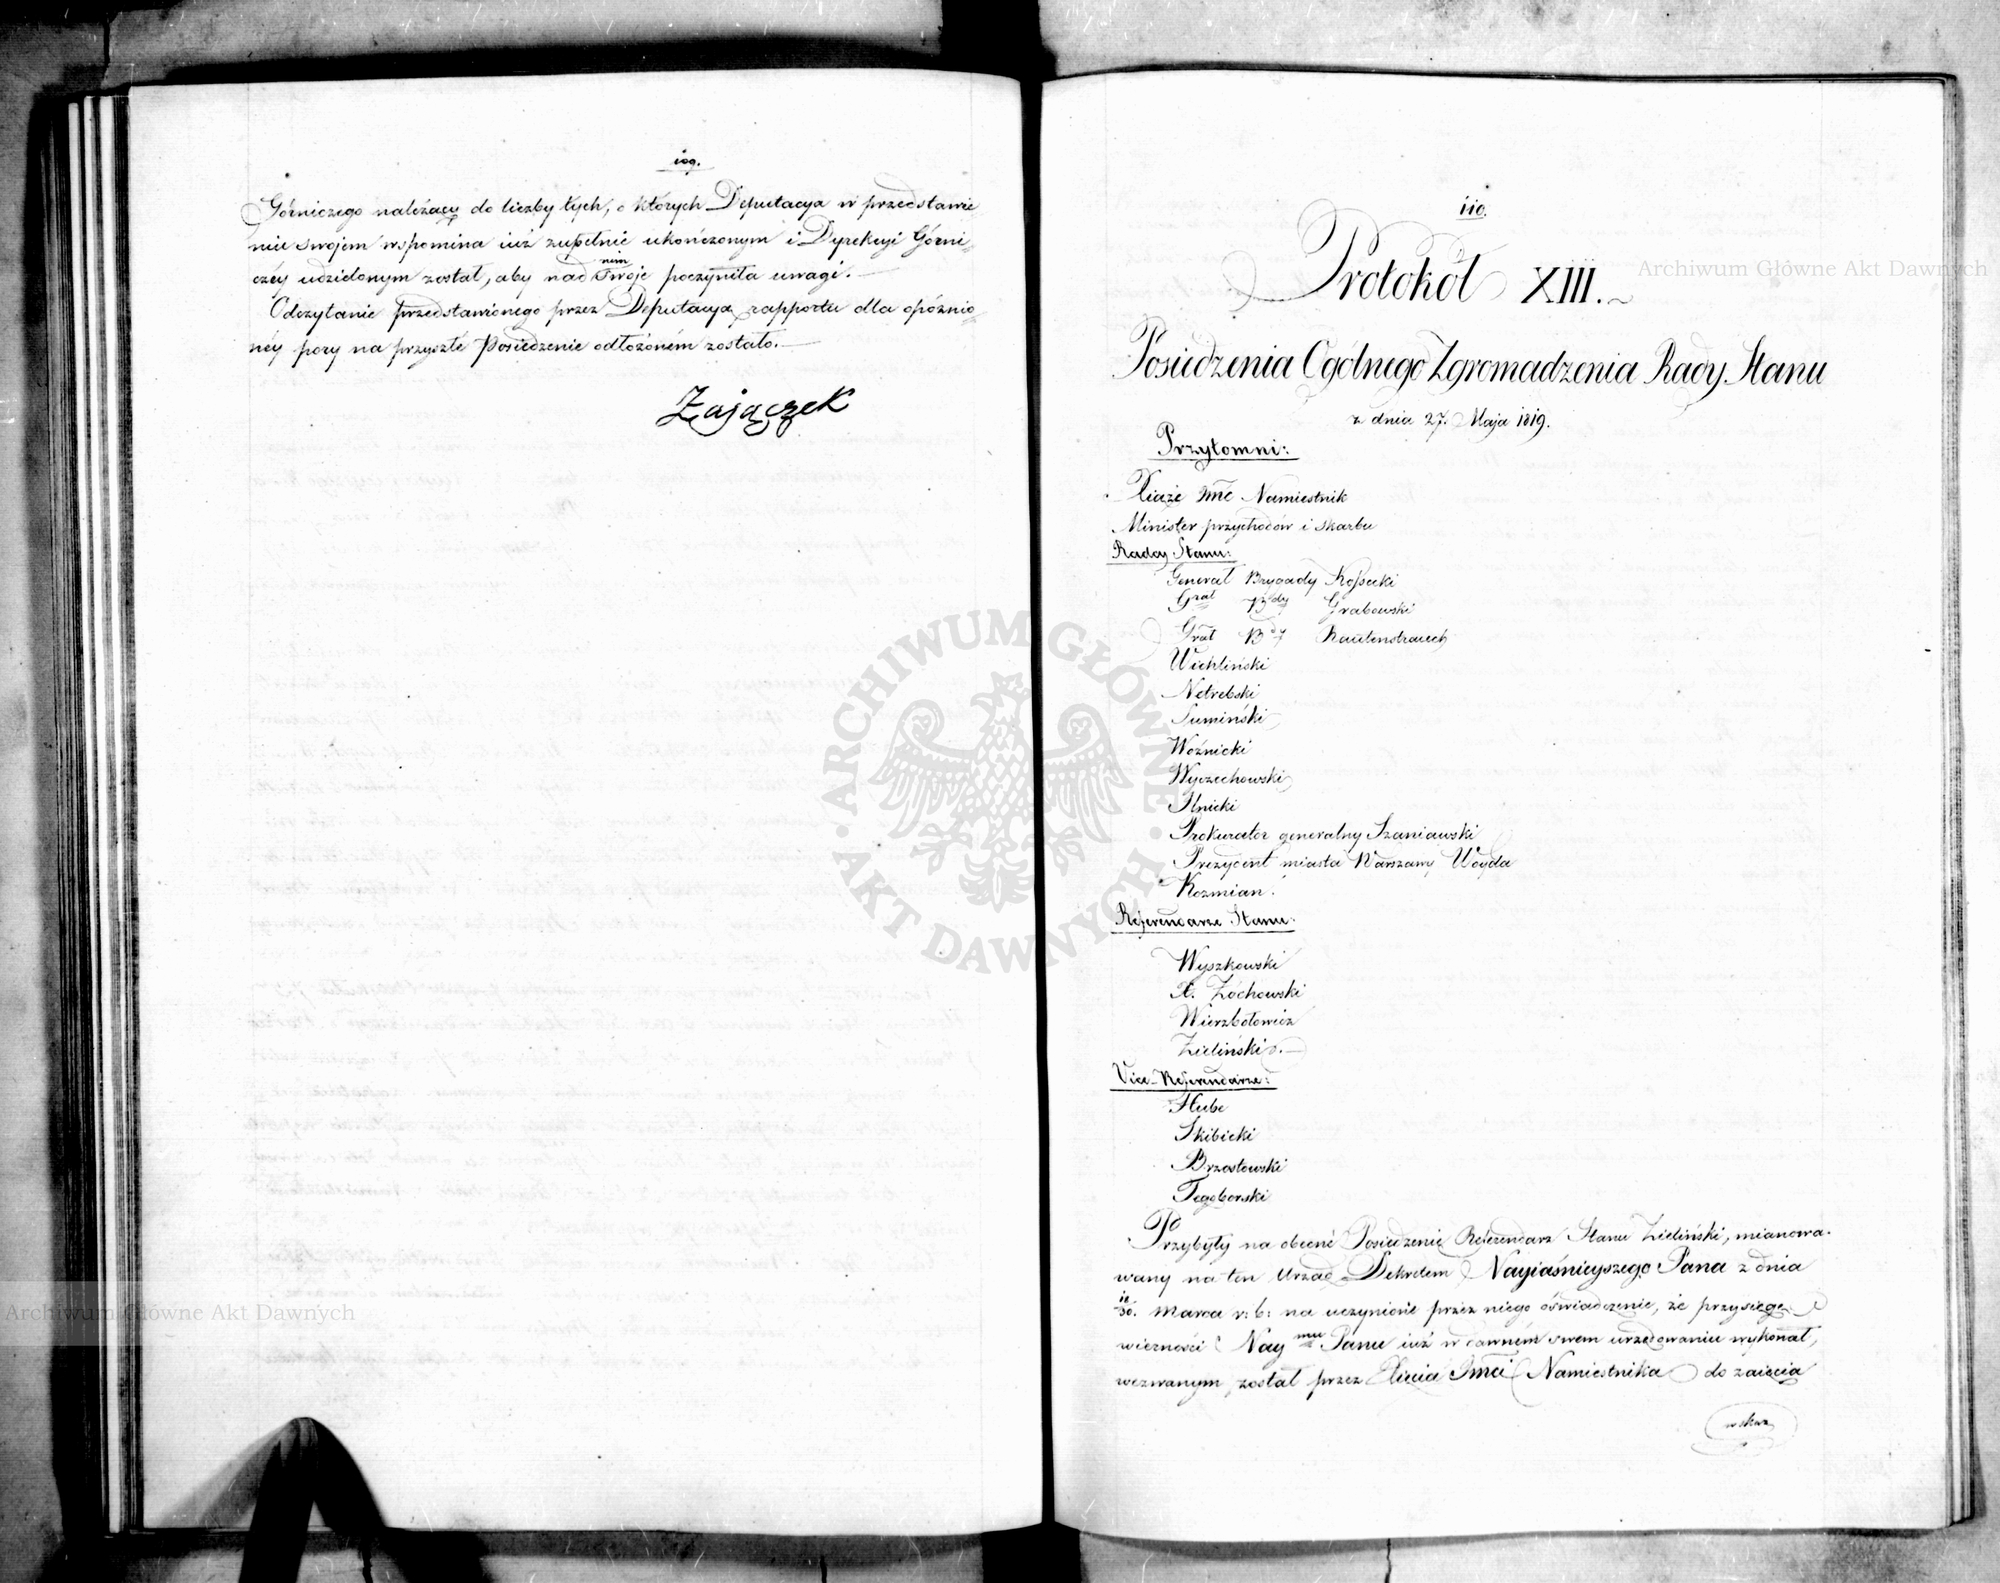 109.
Górniczego należący do liczby tych, o których Deputacya w przedstawie
niu swojem wspomina iuż zupełnie ukończonym i Dyrekcyi Górni=
czéy udzielonym został, aby nad nim swoje poczyniła uwagi.—
Odczytanie przedstawionego przez Deputacyą rapportu dla opóźnio=
néy pory na przyszłe Posiedzenie odłożoném zostało.—
Zajączek
110.
Protokół XIII.
Posiedzenia Ogólnego Zgromadzenia Rady Stanu
z dnia 27. Maja 1819.
Przytomni:
Xiąże Jmć Namiestnik
Minister przychodów i skarbu
Radcy Stanu:
Generał Brygady Kossecki
Grał Bdy Grabowski
Grał Bdy Rautenstrauch
Wichliński
Netrebski
Sumiński
Woźnicki
Wyczechowski
Ilnicki
Prokurator generalny Szaniawski
Prezydent miasta Warszawy Woyda
Kozmian.
Referendarze Stanu:
Wyszkowski
X. Zóchowski
Wierzbołowicz
Zieliński.—
Vice-Referendarze:
Hube
Skibicki
Brzostowski
Tęgoborski
Przybyły na obecné Posiedzenie Referendarz Stanu Zieliński, mianowa-
wany na ten Urząd Dekretem Nayiaśnieyszego Pana z dnia
18/30. Marca r: b: na uczynione przez niego oświadczenie, że przysięgę
wierności Naymu Panu iuż w dawném swem urzędowaniu wykonał,
wezwanym został przez Xięcia Jmći Namiestnika do zaięcia
wskaz
Archiwum Główne Akt Dawnych
Archiwum Główne Akt Dawnych
· ARCHIWUM GŁÓWNE · AKT DAWNYCH